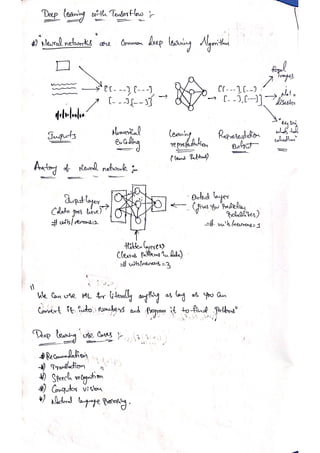 Deep learning with TensorFlow :-
"Neural networks" are Common deep learning Algorithm
[[---], [---]
[---] [---]]
[[---], [---]
[---], [---]]
Food
Images
Not a
disaster
Inputs
Numerical
Encoding
learning
representation
(learns Patterns)
Representation
Output
Anatomy of Neural network :-
Input layer
(data goes here)
# units/neurons = 2
Output layer
(gives you Prediction
Probabilities)
# units/neurons = 1
Hidden layer(s)
(learns patterns in data)
# units/neurons = 3
We can use ML for literally anything as long as you can
Convert it into numbers and program it to find patterns"
Deep learning use cases :-
Recommendation
Translation
Speech recognition
Computer vision
Natural language Processing.